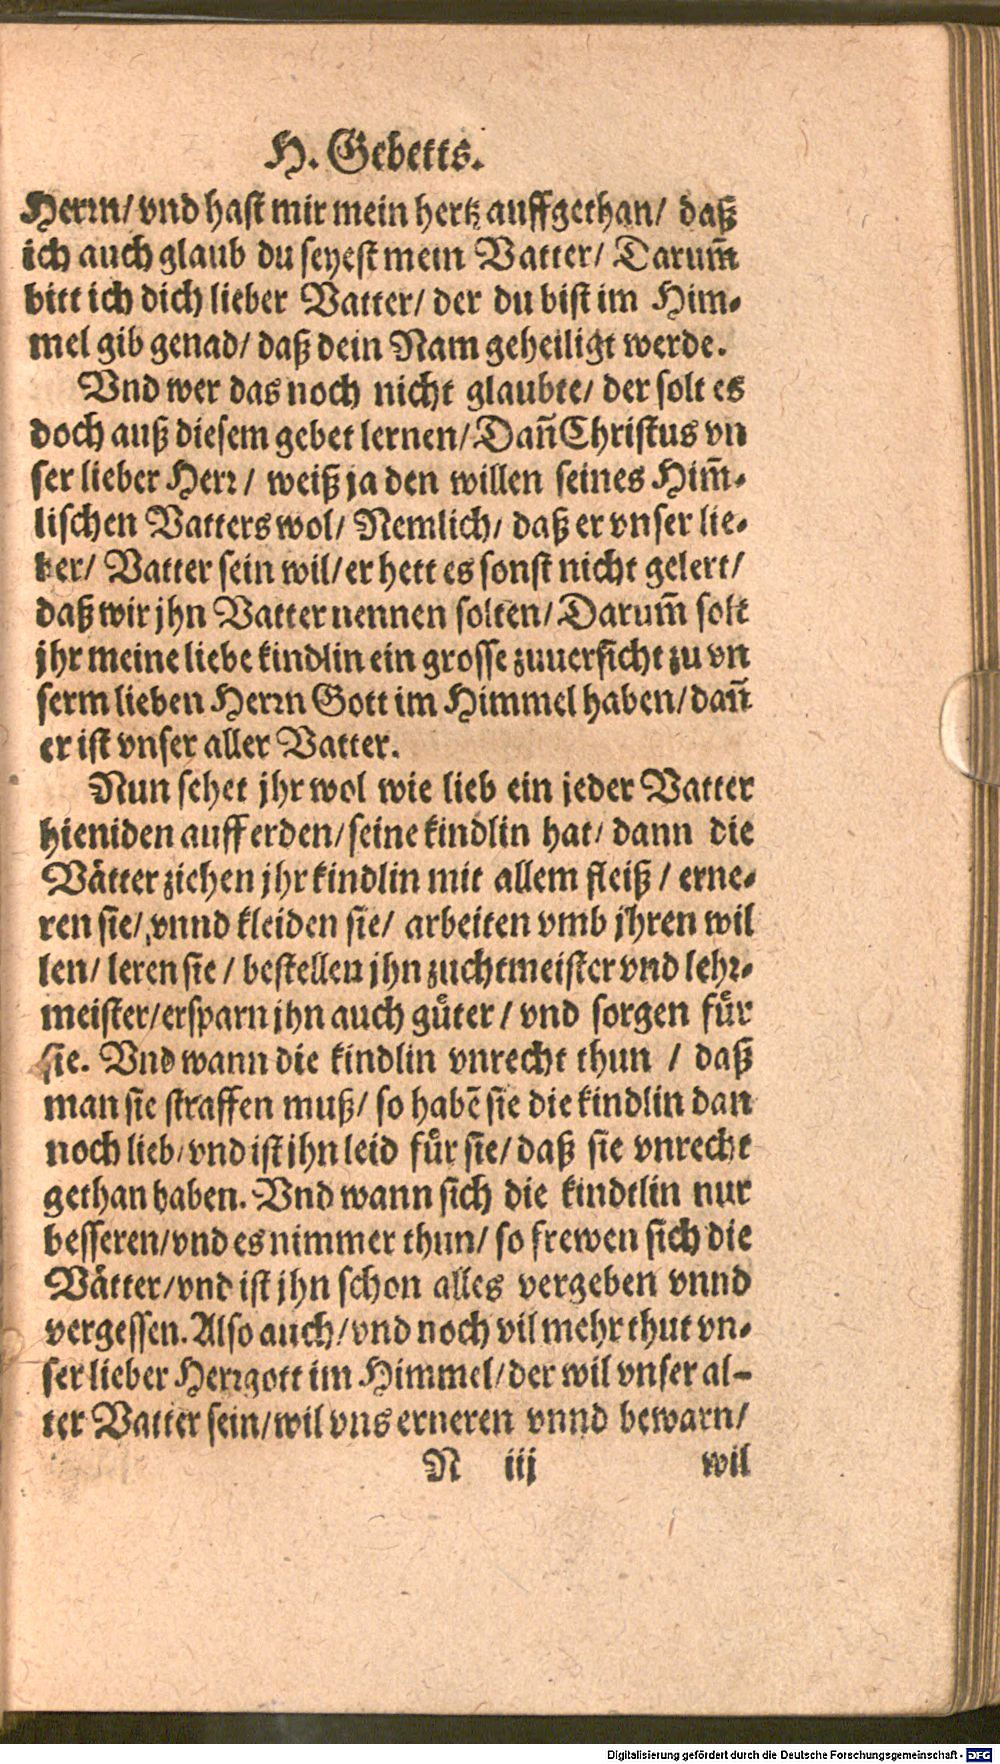 H. Gebetts.
Herrn/ vnd hast mir mein hertz auffgethan/ daß
ich auch glaub du seyest mein Vatter/ Darum̃
bitt ich dich lieber Vatter/ der du bist im Him-
mel gib genad/ daß dein Nam geheiligt werde.
Vnd wer das noch nicht glaubte/ der solt es
doch auß diesem gebet lernen/ Dañ Christus vn
ser lieber Herr/ weiß ja den willen seines Him̃-
lischen Vatters wol/ Nemlich/ daß er vnser lie-
ber/ Vatter sein wil/ er hett es sonst nicht gelert/
daß wir jhn Vatter nennen solten/ Darum̃ solt
jhr meine liebe kindlin ein grosse zuuersicht zu vn
serm lieben Herrn Gott im Himmel haben/ dañ
er ist vnser aller Vatter.
Nun sehet jhr wol wie lieb ein jeder Vatter
hieniden auff erden/ seine kindlin hat/ dann die
Vaͤtter ziehen jhr kindlin mit allem fleiß/ erne-
ren sie/ vnnd kleiden sie/ arbeiten vmb jhren wil
len/ leren sie/ bestellen jhn zuchtmeister vnd lehr-
meister/ ersparn jhn auch guͤter/ vnd sorgen fuͤr
sie. Vnd wann die kindlin vnrecht thun/ daß
man sie straffen muß/ so habẽ sie die kindlin dan
noch lieb/ vnd ist jhn leid fuͤr sie/ daß sie vnrecht
gethan haben. Vnd wann sich die kindtlin nur
besseren/ vnd es nimmer thun/ so frewen sich die
Vaͤtter/ vnd ist jhn schon alles vergeben vnnd
vergessen. Also auch/ vnd noch vil mehr thut vn-
ser lieber Herrgott im Himmel/ der wil vnser al-
ter Vatter sein/ wil vns erneren vnnd bewarn/
N iij wil
Digitalisierung gefördert durch die Deutsche Forschungsgemeinschaft - DFG